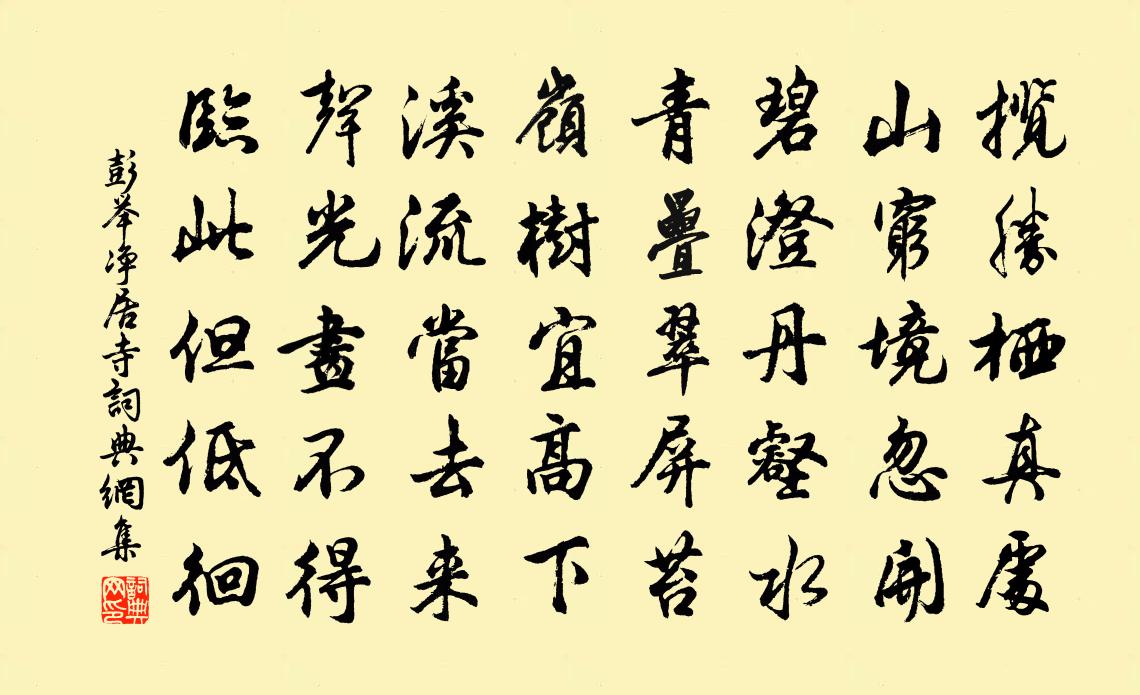 攬勝栖真處
山窮境忽開
碧澄丹壑水
青疊翠屏苔
嶺樹宜高下
溪流當去来
聲光畫不得
臨此但低徊
彭举净居寺詞典網集
詞典网印